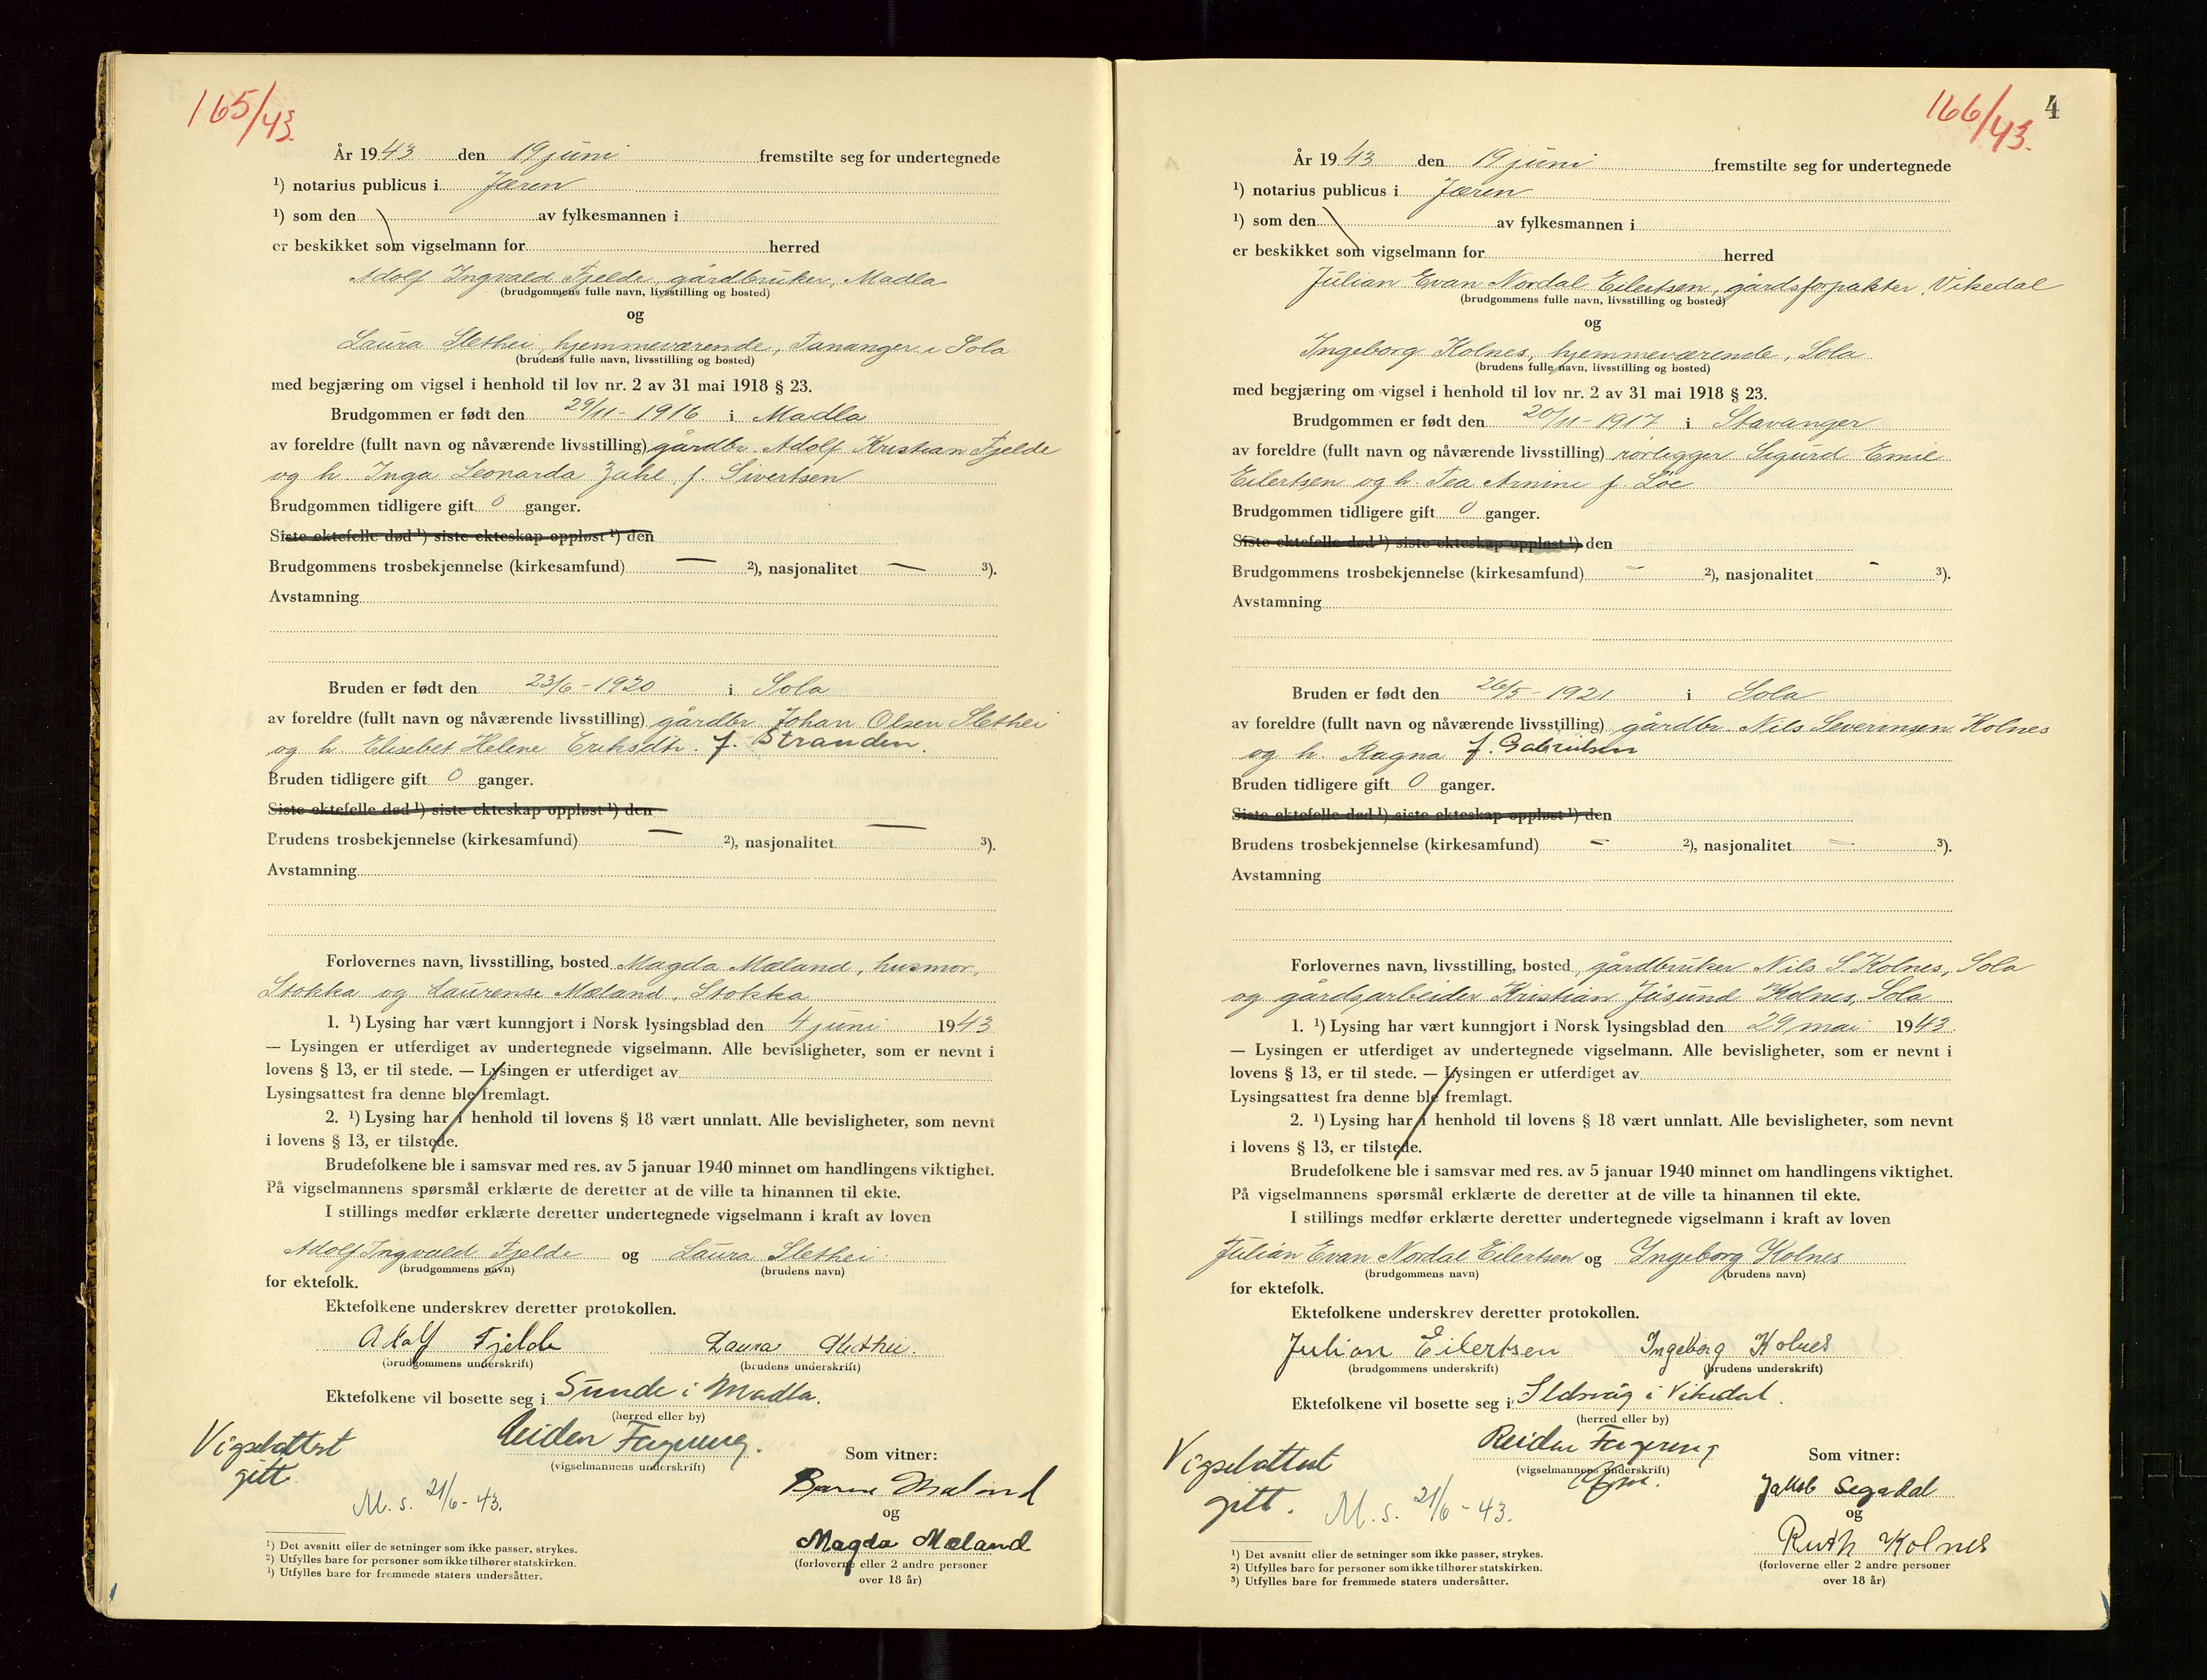 165/43.
År 1943 den 19 juni fremstilte seg for undertegnede
¹) notarius publicus i Jæren
¹) som den av fylkesmannen i
er beskikket som vigselmann for herred
Adolf Ingvald Fjelde, gårdbruker, Madla
(brudgommens fulle navn, livsstilling og bosted)
og
Laura Slethei, hjemmeværende, Tananger i Sola
(brudens fulle navn, livsstilling og bosted)
med begjæring om vigsel i henhold til lov nr. 2 av 31 mai 1918 § 23.
Brudgommen er født den 29/11 - 1916 i Madla
av foreldre (fullt navn og nåværende livsstilling) gårdbr. Adolf Kristian Fjelde
og h. Inga Leonarda Zahl f. Sivertsen
Brudgommen tidligere gift 0 ganger.
Siste ektefelle død ¹) siste ekteskap oppløst ¹) den
Brudgommens trosbekjennelse (kirkesamfund) — ²), nasjonalitet — ³).
Avstamning
Bruden er født den 23/6 - 1920 i Sola
av foreldre (fullt navn og nåværende livsstilling) gårdbr. Johan Olsen Slethei
og h. Elisebet Helene Eriksdtr. f. Stranden.
Bruden tidligere gift 0 ganger.
Siste ektefelle død ¹) siste ekteskap oppløst ¹) den
Brudens trosbekjennelse (kirkesamfund) — ²), nasjonalitet — ³).
Avstamning
Forlovernes navn, livsstilling, bosted Magda Mæland, husmor,
Stokka og Laurense Mæland, Stokka
1. ¹) Lysing har vært kunngjort i Norsk lysingsblad den 4 juni 1943
— Lysingen er utferdiget av undertegnede vigselmann. Alle bevisligheter, som er nevnt i
lovens § 13, er til stede. — Lysingen er utferdiget av
Lysingsattest fra denne ble fremlagt.
2. ¹) Lysing har i henhold til lovens § 18 vært unnlatt. Alle bevisligheter, som nevnt
i lovens § 13, er tilstede.
Brudefolkene ble i samsvar med res. av 5 januar 1940 minnet om handlingens viktighet.
På vigselmannens spørsmål erklærte de deretter at de ville ta hinannen til ekte.
I stillings medfør erklærte deretter undertegnede vigselmann i kraft av loven
Adolf Ingvald Fjelde og Laura Slethei
(brudgommens navn) (brudens navn)
for ektefolk.
Ektefolkene underskrev deretter protokollen.
Adolf Fjelde Laura Slethei.
(brudgommens underskrift) (brudens underskrift)
Ektefolkene vil bosette seg i Sunde i Madla.
(herred eller by)
Vigselattest
gitt.
Reidar Fagereng.
(vigselmannens underskrift)
M. s. 21/6 - 43.
Som vitner:
Bjarne Mæland
og
Magda Mæland
(forloverne eller 2 andre personer
over 18 år)
¹) Det avsnitt eller de setninger som ikke passer, strykes.
²) Utfylles bare for personer som ikke tilhører statskirken.
³) Utfylles bare for fremmede staters undersåtter.
166/43.
4
År 1943 den 19 juni fremstilte seg for undertegnede
¹) notarius publicus i Jæren
¹) som den av fylkesmannen i
er beskikket som vigselmann for herred
Julian Evan Nordal Eilertsen, gårdsforpakter, Vikedal
(brudgommens fulle navn, livsstilling og bosted)
og
Ingeborg Kolnes, hjemmeværende, Sola
(brudens fulle navn, livsstilling og bosted)
med begjæring om vigsel i henhold til lov nr. 2 av 31 mai 1918 § 23.
Brudgommen er født den 20/11 - 1917 i Stavanger
av foreldre (fullt navn og nåværende livsstilling) rørlegger Sigurd Emil
Eilertsen og h. Tea Arnine f. Løe
Brudgommen tidligere gift 0 ganger.
Siste ektefelle død ¹) siste ekteskap oppløst ¹) den
Brudgommens trosbekjennelse (kirkesamfund) — ²), nasjonalitet - ³).
Avstamning
Bruden er født den 26/5 - 1921 i Sola
av foreldre (fullt navn og nåværende livsstilling) gårdbr. Nils Severinsen Kolnes
og h. Ragna f. Gabrielsen
Bruden tidligere gift 0 ganger.
Siste ektefelle død ¹) siste ekteskap oppløst ¹) den
Brudens trosbekjennelse (kirkesamfund) — ²), nasjonalitet — ³).
Avstamning
Forlovernes navn, livsstilling, bosted gårdbruker Nils S. Kolnes, Sola
og gårdsarbeider Kristian Jåsund Kolnes, Sola
1. ¹) Lysing har vært kunngjort i Norsk lysingsblad den 29 mai 1943
— Lysingen er utferdiget av undertegnede vigselmann. Alle bevisligheter, som er nevnt i
lovens § 13, er til stede. — Lysingen er utferdiget av
Lysingsattest fra denne ble fremlagt.
2. ¹) Lysing har i henhold til lovens § 18 vært unnlatt. Alle bevisligheter, som nevnt
i lovens § 13, er tilstede.
Brudefolkene ble i samsvar med res. av 5 januar 1940 minnet om handlingens viktighet.
På vigselmannens spørsmål erklærte de deretter at de ville ta hinannen til ekte.
I stillings medfør erklærte deretter undertegnede vigselmann i kraft av loven
Julian Evan Nordal Eilertsen og Ingeborg Kolnes
(brudgommens navn) (brudens navn)
for ektefolk.
Ektefolkene underskrev deretter protokollen.
Julian Eilertsen Ingeborg Kolnes
(brudgommens underskrift) (brudens underskrift)
Ektefolkene vil bosette seg i Ilsvåg i Vikedal.
(herred eller by)
Vigselattest
gitt.
Reidar Fagereng
(vigselmannens underskrift)
M. s. 21/6 - 43.
Som vitner:
Jakob Segadal
og
Ruth Kolnes
(forloverne eller 2 andre personer
over 18 år)
¹) Det avsnitt eller de setninger som ikke passer, strykes.
²) Utfylles bare for personer som ikke tilhører statskirken.
³) Utfylles bare for fremmede staters undersåtter.